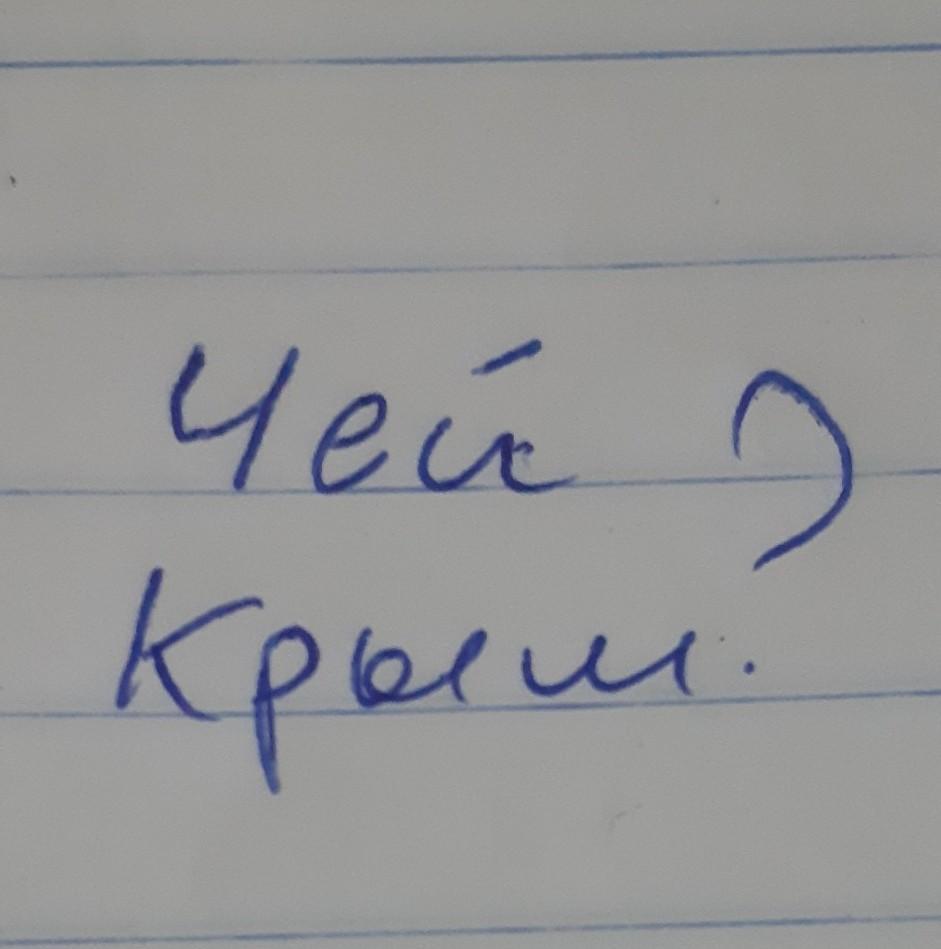 Чей ?
Крым